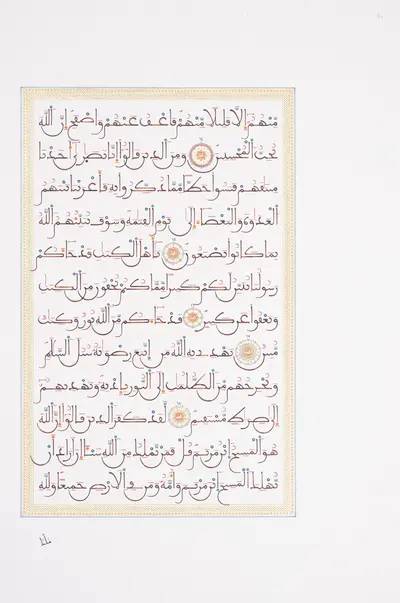 منهم إلا قليلا منهم فاعف عنهم واصفح إن الله
يحب المحسنين ومن الذين قالوا إنا نصرى أخذنا
ميثقهم فنسوا حظا مما ذكروا به فأغرينا بينهم
العداوة والبغضاء إلى يوم القيمة وسوف ينبئهم الله
بما كانوا يصنعون يأهل الكتب قد جاءكم
رسولنا يبين لكم كثيرا مما كنتم تخفون من الكتب
ويعفوا عن كثير قد جاءكم من الله نور وكتب
مبين يهدي به الله من اتبع رضونه سبل السلم
ويخرجهم من الظلمت إلى النور بإذنه ويهديهم
إلى صرط مستقيم لقد كفر الذين قالوا إن الله
هو المسيح ابن مريم قل فمن يملك من الله شيئا إن أراد أن
يهلك المسيح ابن مريم وأمه ومن في الأرض جميعا ولله